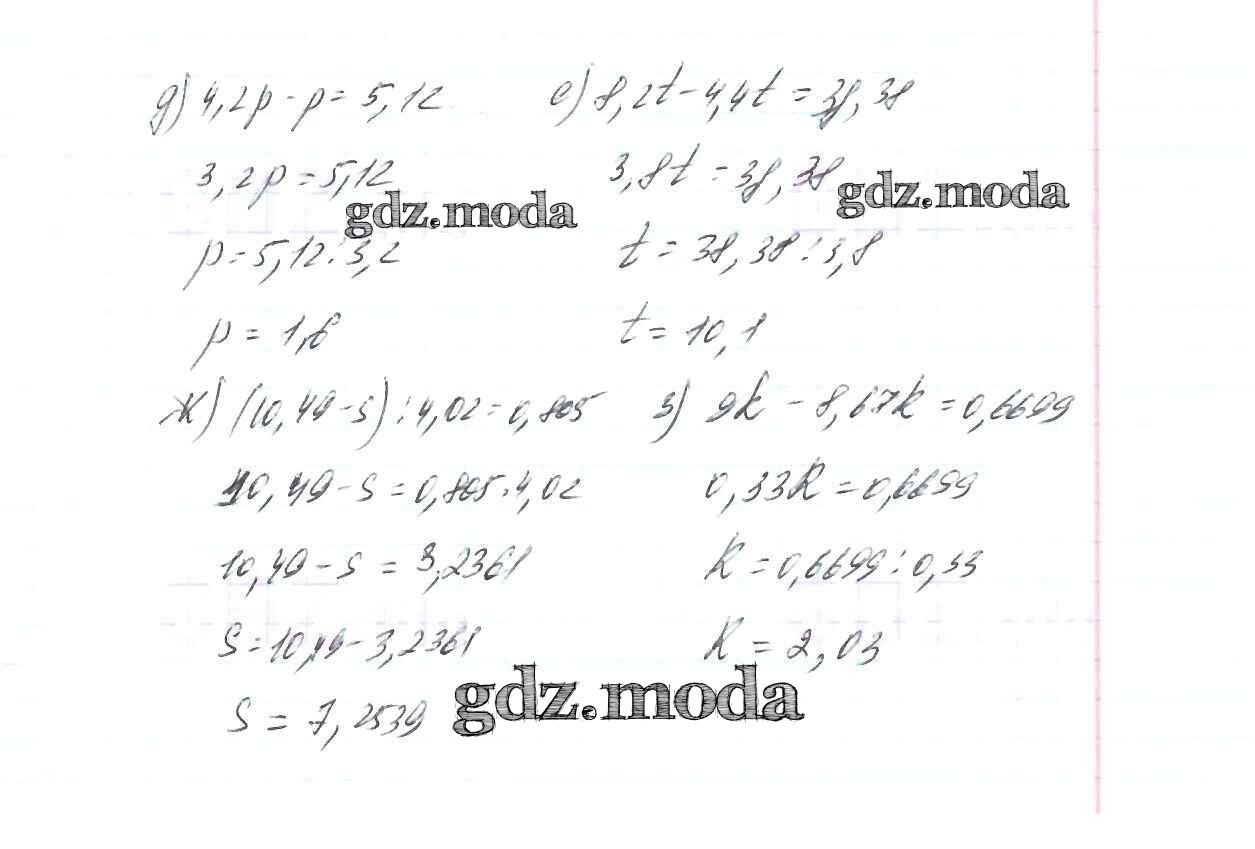 д) 4,2p - p = 5,12
3,2p = 5,12
p = 5,12 : 3,2
p = 1,6
е) 8,2t - 4,4t = 38,38
3,8t = 38,38
t = 38,38 : 3,8
t = 10,1
ж) (10,49 - s) : 4,02 = 0,805
10,49 - s = 0,805 · 4,02
10,49 - s = 3,2361
s = 10,49 - 3,2361
s = 7,2539
з) 9k - 8,67k = 0,6699
0,33k = 0,6699
k = 0,6699 : 0,33
k = 2,03
gdz.moda
gdz.moda
gdz.moda